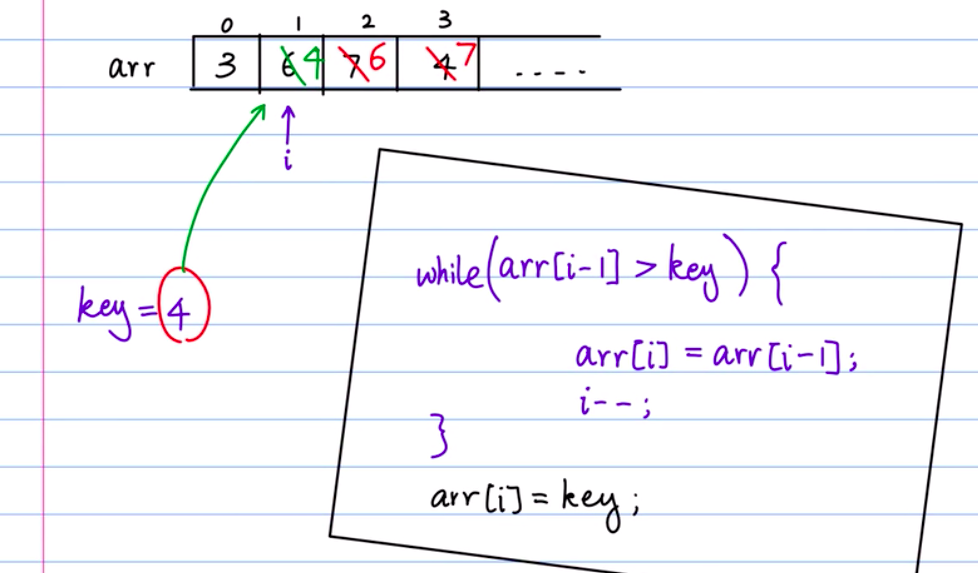 0 1 2 3
arr 3 6 4 7 6 4 7 ....
i
key = 4
while(arr[i-1] > key) {
arr[i] = arr[i-1];
i--;
}
arr[i] = key;